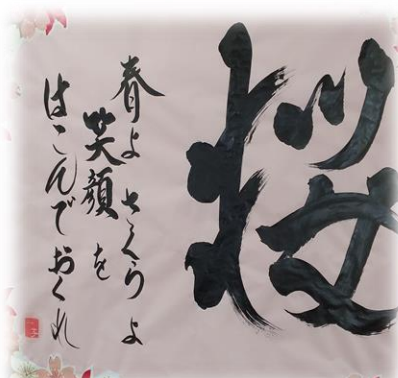 桜
春よさくらよ
笑顔を
はこんでおくれ